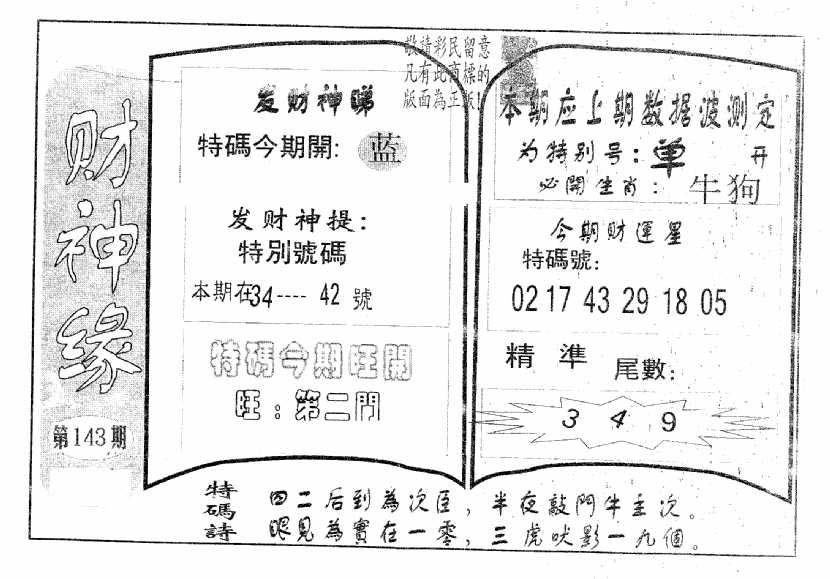 敬請彩民留意
凡有此商標的
版面為正版!
财神缘
第143期
发财神睇
特碼今期開: 蓝
发财神提:
特別號碼
本期在34----42號
特碼今期旺開
旺:第二門
本期应上期数据波测定
为特别号:单 开
必開生肖: 牛狗
今期财運星
特碼號:
02 17 43 29 18 05
精準 尾數:
3 4 9
特碼詩
四二后到為次臣,半夜敲門牛主次。
眼見為實在一零,三虎吠影一九個。